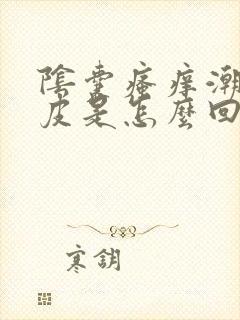 陰囊瘙癢潮
皮是怎麼回
寒鈅